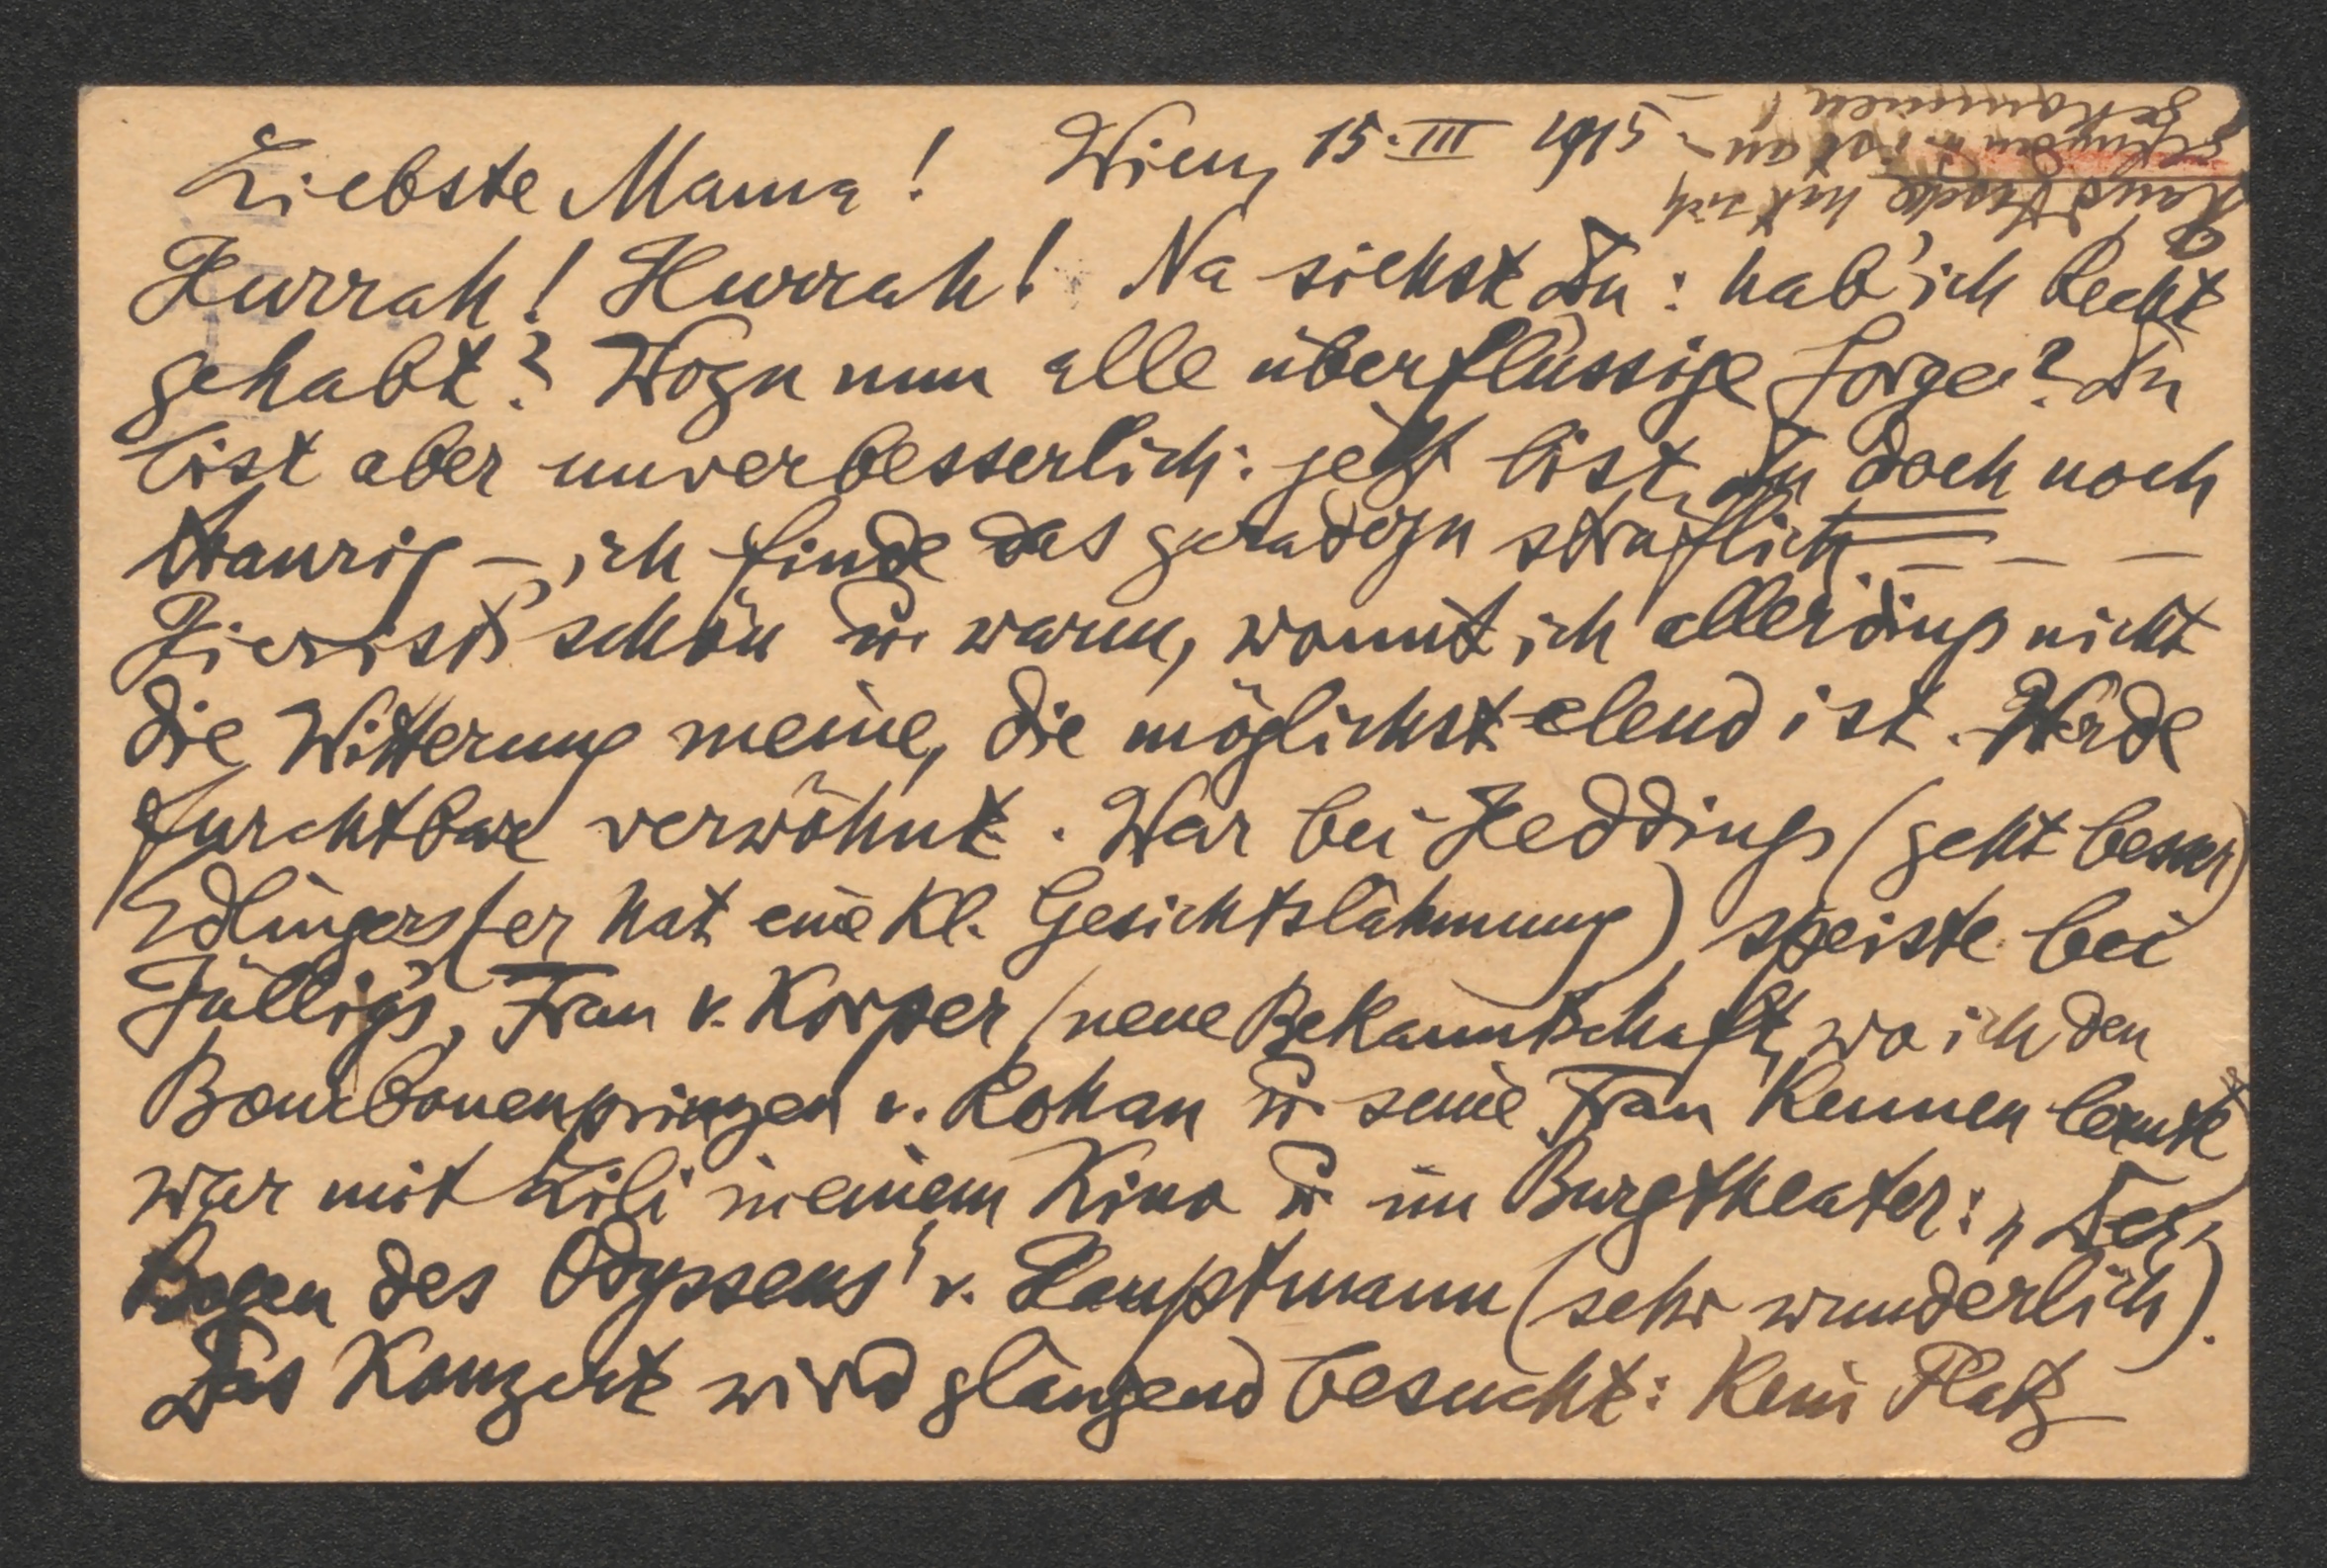 Liebste Mama! Wien, 15. III 1915.
Hurrah! Hurrah! Na siehst Du: hab' ich Recht
gehabt? Wozu nun alle überflüssige Sorge? Du
bist aber unverbesserlich: jetzt bist Du doch noch
traurig – ich finde das geradezu sträflich – – –
Hier ist's schön u. warm, womit ich allerdings nicht
die Witterung meine, die möglichst elend ist. Werde
furchtbar verwöhnt. War bei Heddings (geht besser)
Edlingers (er hat eine kl. Gesichtslähmung) speiste bei
Fälligs, Frau v. Korper (neue Bekanntschaft, wo ich den
Bourbonenprinzen v. Rohan u. seine Frau kennen lernte)
war mit Lili in einem Kino u. im Burgtheater: „Der
Bogen des Odysseus" v. Hauptmann (sehr wunderlich).
Das Konzert wird glänzend besucht: Kein Platz
hat sich
gefunden u. ist an-
gekommen!